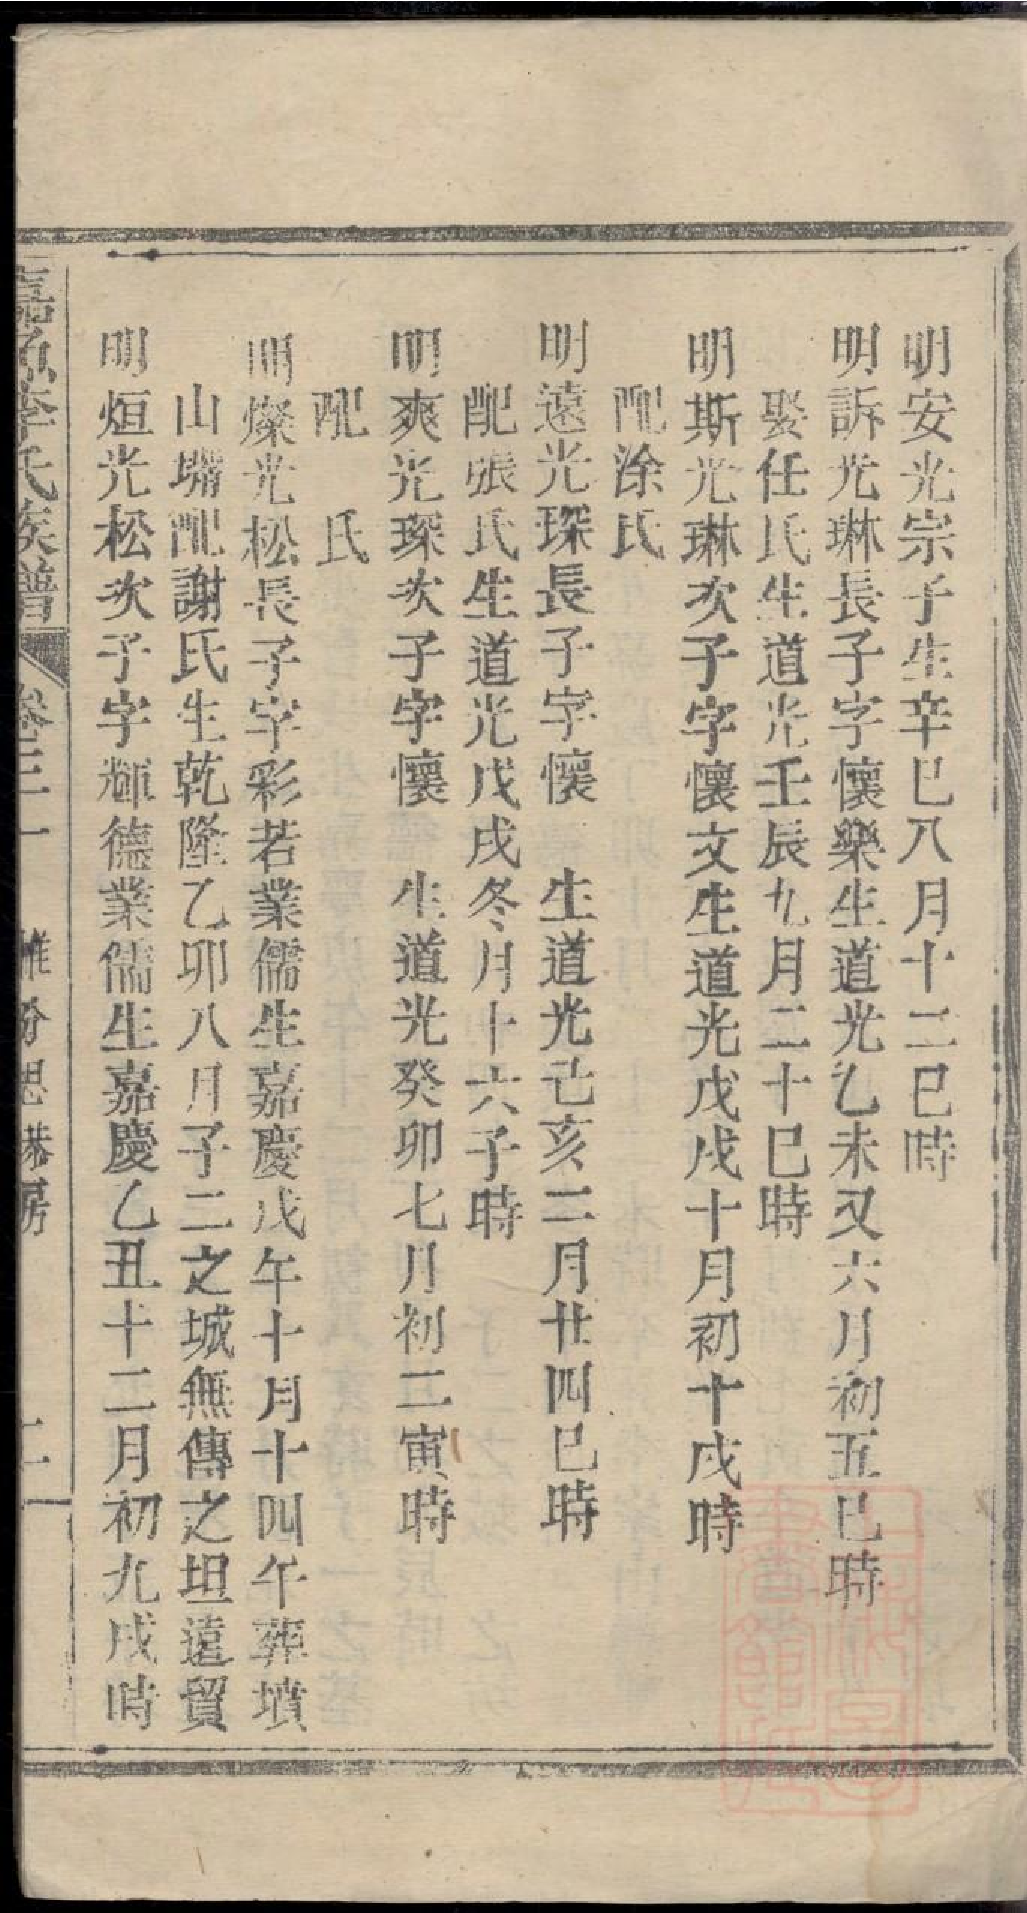 明安光宗子生辛巳八月十二巳時
明訴光琳長子字懷樂生道光乙未又六月初五巳時
娶任氏生道光壬辰九月二十巳時
明斯光琳次子字懷文生道光戊戌十月初十戌時
配涂氏
明遠光琛長子字懷 生道光己亥二月廿四巳時
配張氏生道光戊戌冬月十六子時
明爽光琛次子字懷 生道光癸卯七月初二寅時
配 氏
明燦光松長子字彩若業儒生嘉慶戊午十月十四午葬墳
山墈配謝氏生乾隆乙卯八月子二之城無傳之坦遠貿
明烜光松次子字輝德業儒生嘉慶乙丑十二月初九戌時
嘉魚李氏族譜 卷三一 雅份思恭房